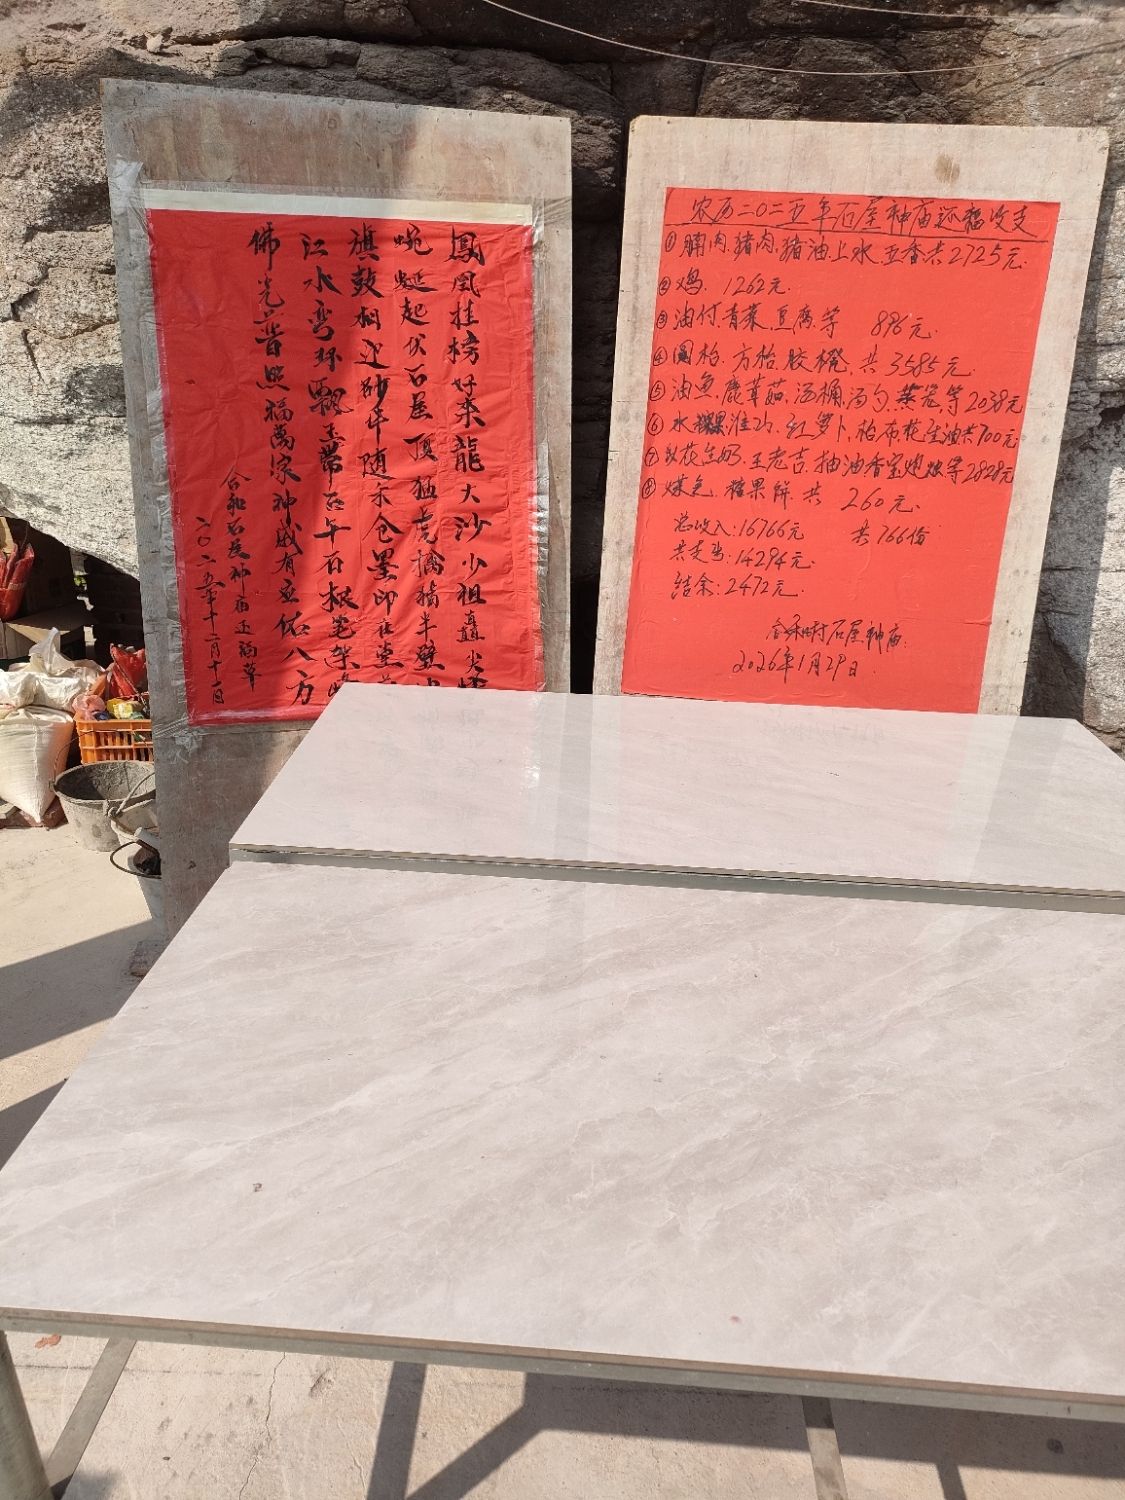 鳳凰挂榜好來龍大沙少祖矗尖
蜿蜒起伏石屋頂猛虎擒猪半壁
旗鼓相迎砂年随示仓墨印在
江水弯环飄玉帶百年百根笔架
佛光普照福萬家神威有亚依八方
合和石屋神庙还福草
二〇二五年十二月十二日
农历二〇二五年石屋神庙还福收支
①腩肉、猪肉、猪油、上水、五香共2725元
②鸡、1262元
③油付、青菜、豆腐等 896元
④圆枱、方枱、胶櫈、共3585元
⑤油鱼、鹿茸菇、汤桶、汤勺、蒸笼等2038元
⑥水粿、淮山、红萝卜、枱布、花生油共700元
⑦以花生奶、王老吉、抽油香宝炮烛等2828元
⑧煤气、糖果餅、共 260元
总收入：16766元 共766份
共支出：14294元
结余：2472元
合和村石屋神庙
2026年1月29日